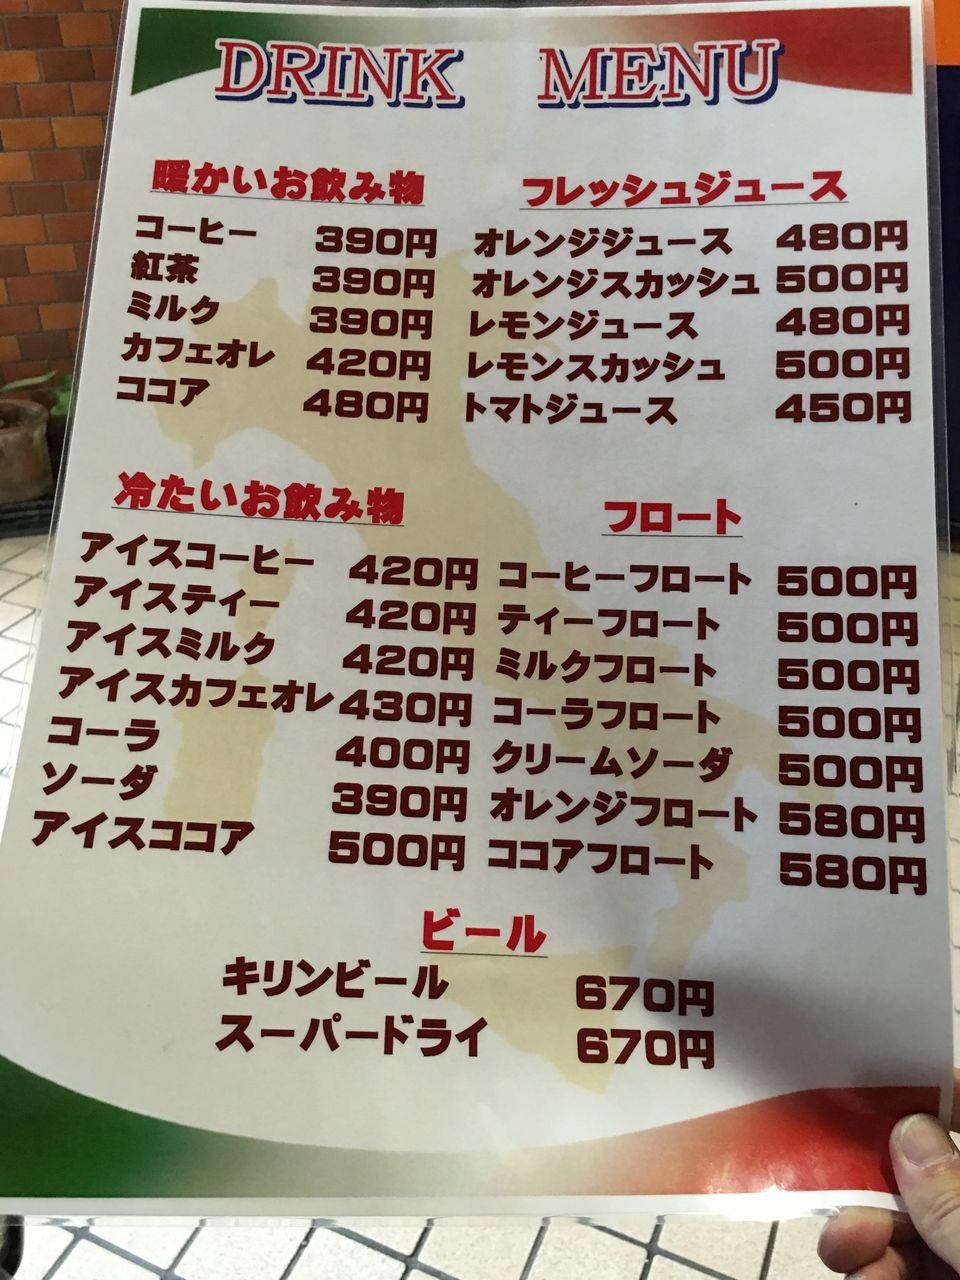 DRINK MENU
暖かいお飲み物
コーヒー 390円
紅茶 390円
ミルク 390円
カフェオレ 420円
ココア 480円
フレッシュジュース
オレンジジュース 480円
オレンジスカッシュ 500円
レモンジュース 480円
レモンスカッシュ 500円
トマトジュース 450円
冷たいお飲み物
アイスコーヒー 420円
アイスティー 420円
アイスミルク 420円
アイスカフェオレ 430円
コーラ 400円
ソーダ 390円
アイスココア 500円
フロート
コーヒーフロート 500円
ティーフロート 500円
ミルクフロート 500円
コーラフロート 500円
クリームソーダ 500円
オレンジフロート 580円
ココアフロート 580円
ビール
キリンビール 670円
スーパードライ 670円